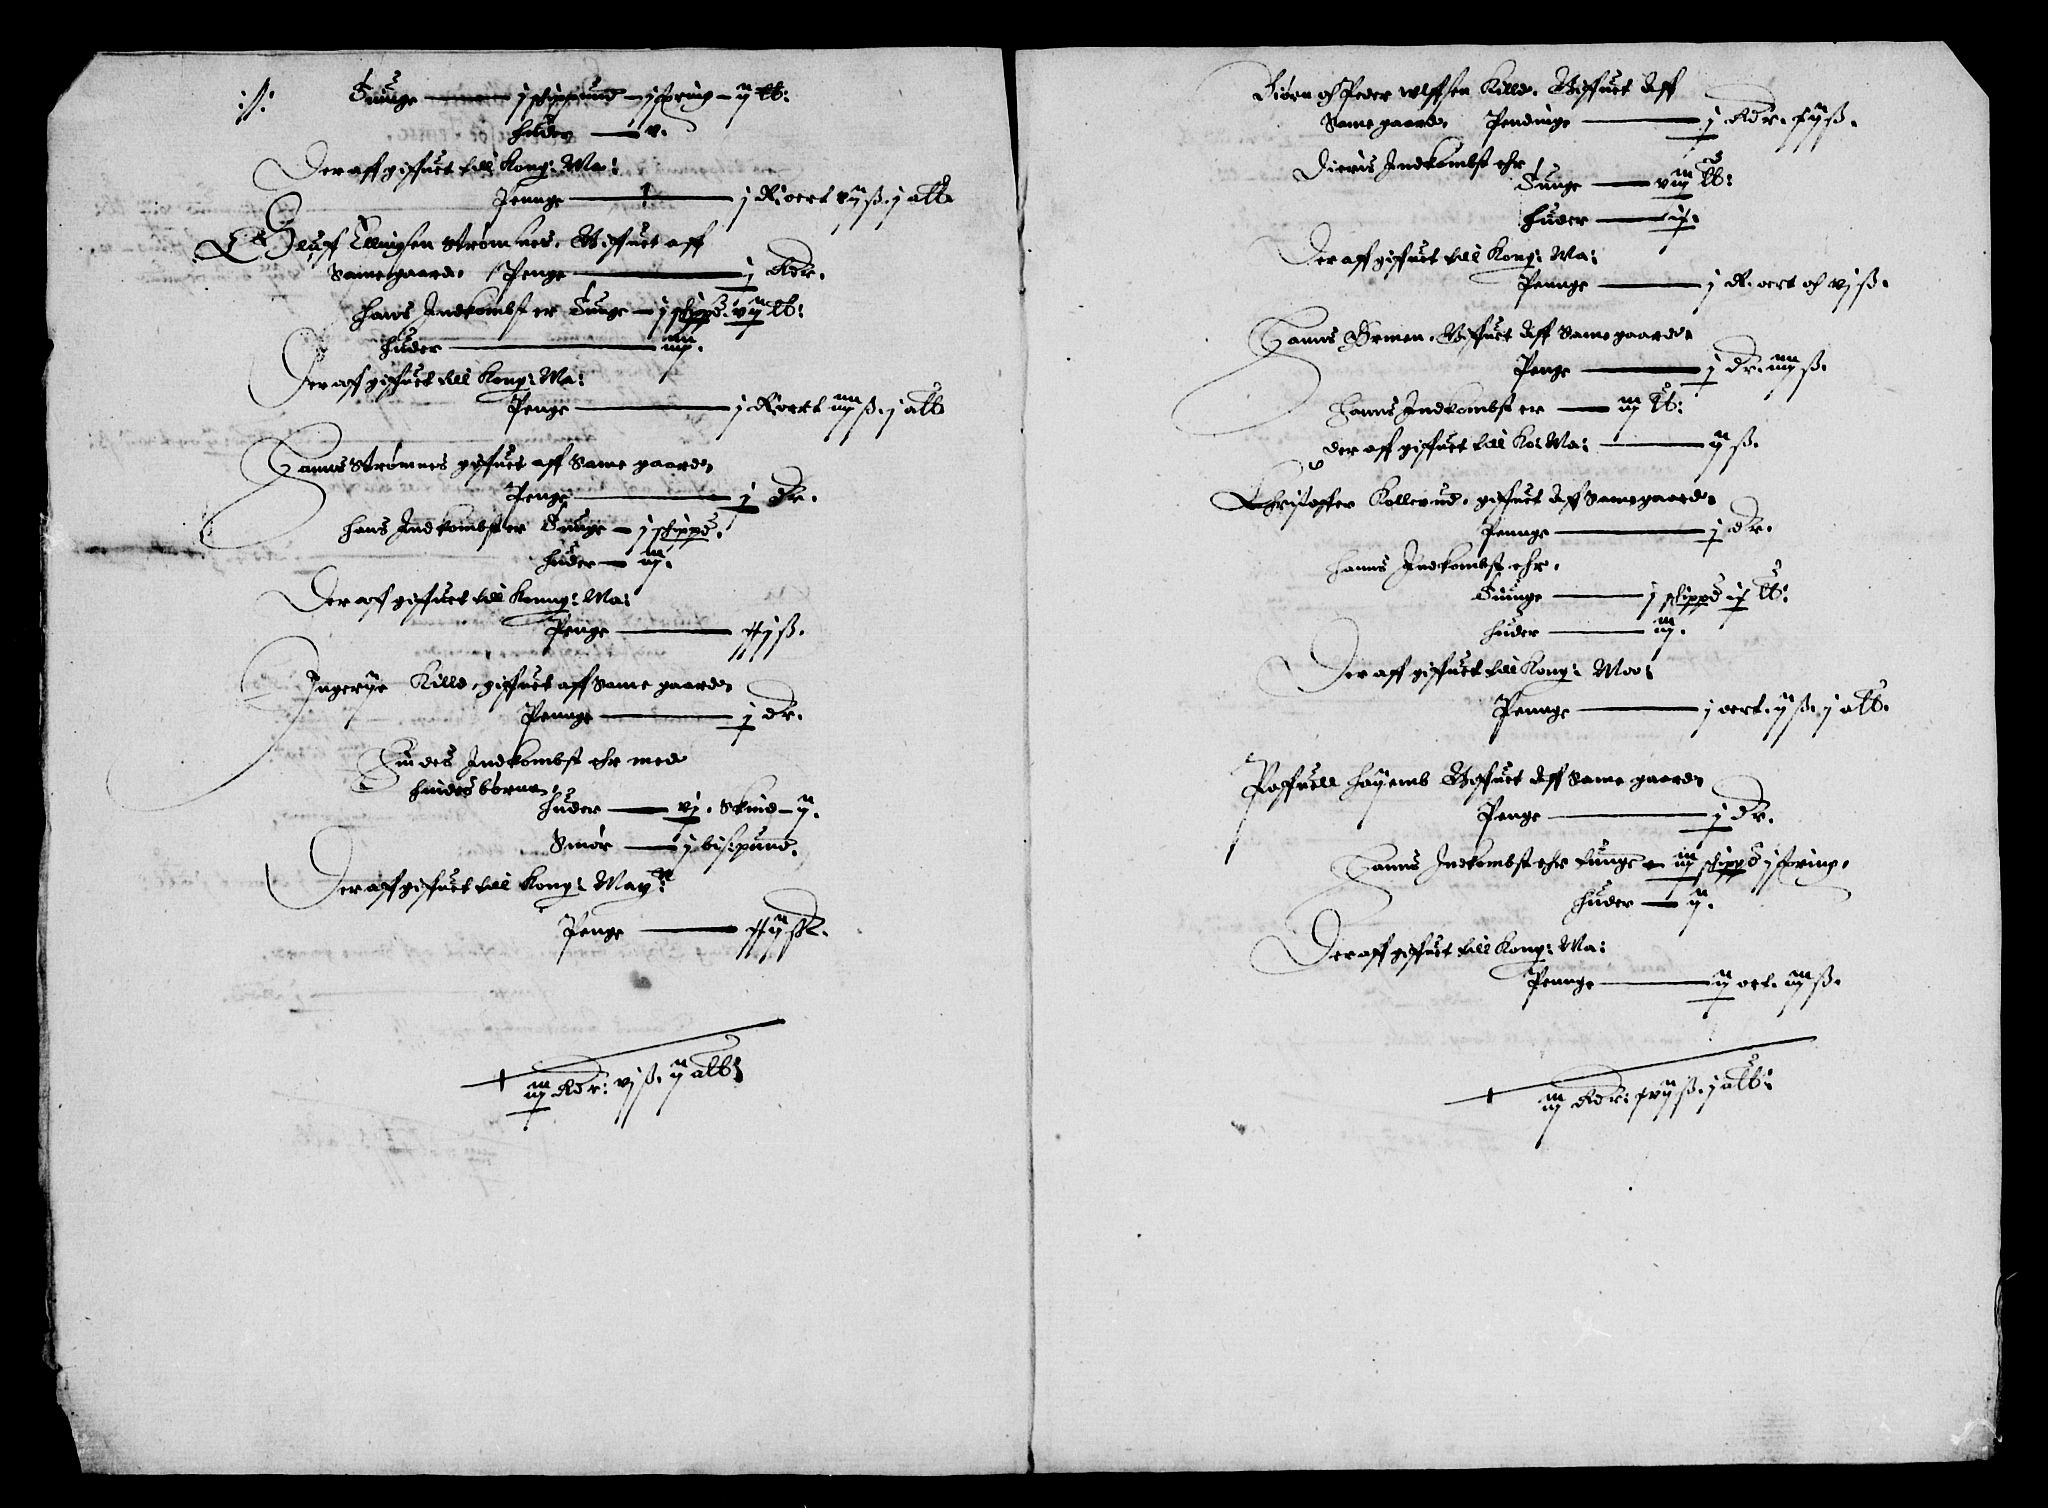 :/: Tunge — j schippund – j spring – ij lb:
Huder — v.
Deraff giffuet till Kong: Ma:
Penge — j R: oert vij ß. j alb
Oluff Ellingsen Strømsnes. Giffuet aff
Samegaard. Penge — j Rdr.
Hans Indkombst er Tunge – j schippd. vij lb:
Huder — iiij.
Der aff giffuet till Kong: Ma:
Penge — j R: oert iiij ß. j alb
Hanns Strømnes giffuet aff Same gaard
Penge — j dr.
Hans Indkombst er Tunge – j schippd.
Huder — iij.
Der aff giffuet till Konng: Ma:
Penge — xxj ß.
Ingerije Kille, giffuet aff Same gaard
Pennge — j dr.
Hindes Indkombst ehr med
hindes børnn,
Huder — vj. Skind – ij.
Smør — j bisspund.
Deraff giffuet till Kong: Maytt:
Penge — xxij ß.
iij Rdr: vj ß. ij alb:
Biørn och Peder Wlffsen Kille. Giffuet Aff
Same gaard. Pendinge — j Rdr. xij ß.
Dieris Indkombst ehr
Tunge — viij lb:
Huder — ix.
Der aff giffuet till Kong: Ma:
Pennge — j R. oert och vj ß.
Hanns Ørmen. Giffuet Aff Same gaard
Penge — j dr. iiij ß.
Hanns Indkombst er — iij lb:
der aff giffuet till Ko: Ma: — ij ß.
Christoffer Kollerud. giffuet Aff Samegaard
Pennge — j dr.
Hanns Indkombst ehr.
Tunge — j schippd ix lb:
Huder — iij.
Der aff giffuet till Kong: Mao:
Pennge — j oert. ij ß. j alb.
Raffuell Høyemb Giffuet Aff Same gaard
Penge — j dr.
Hanns Indkombst ehr Tunge – iij schippd j spring.
Huder — ij.
Der aff giffuet till Kong: Ma:
Pennge — ij ort. iij ß.
iij Rdr: xvij ß. j alb: